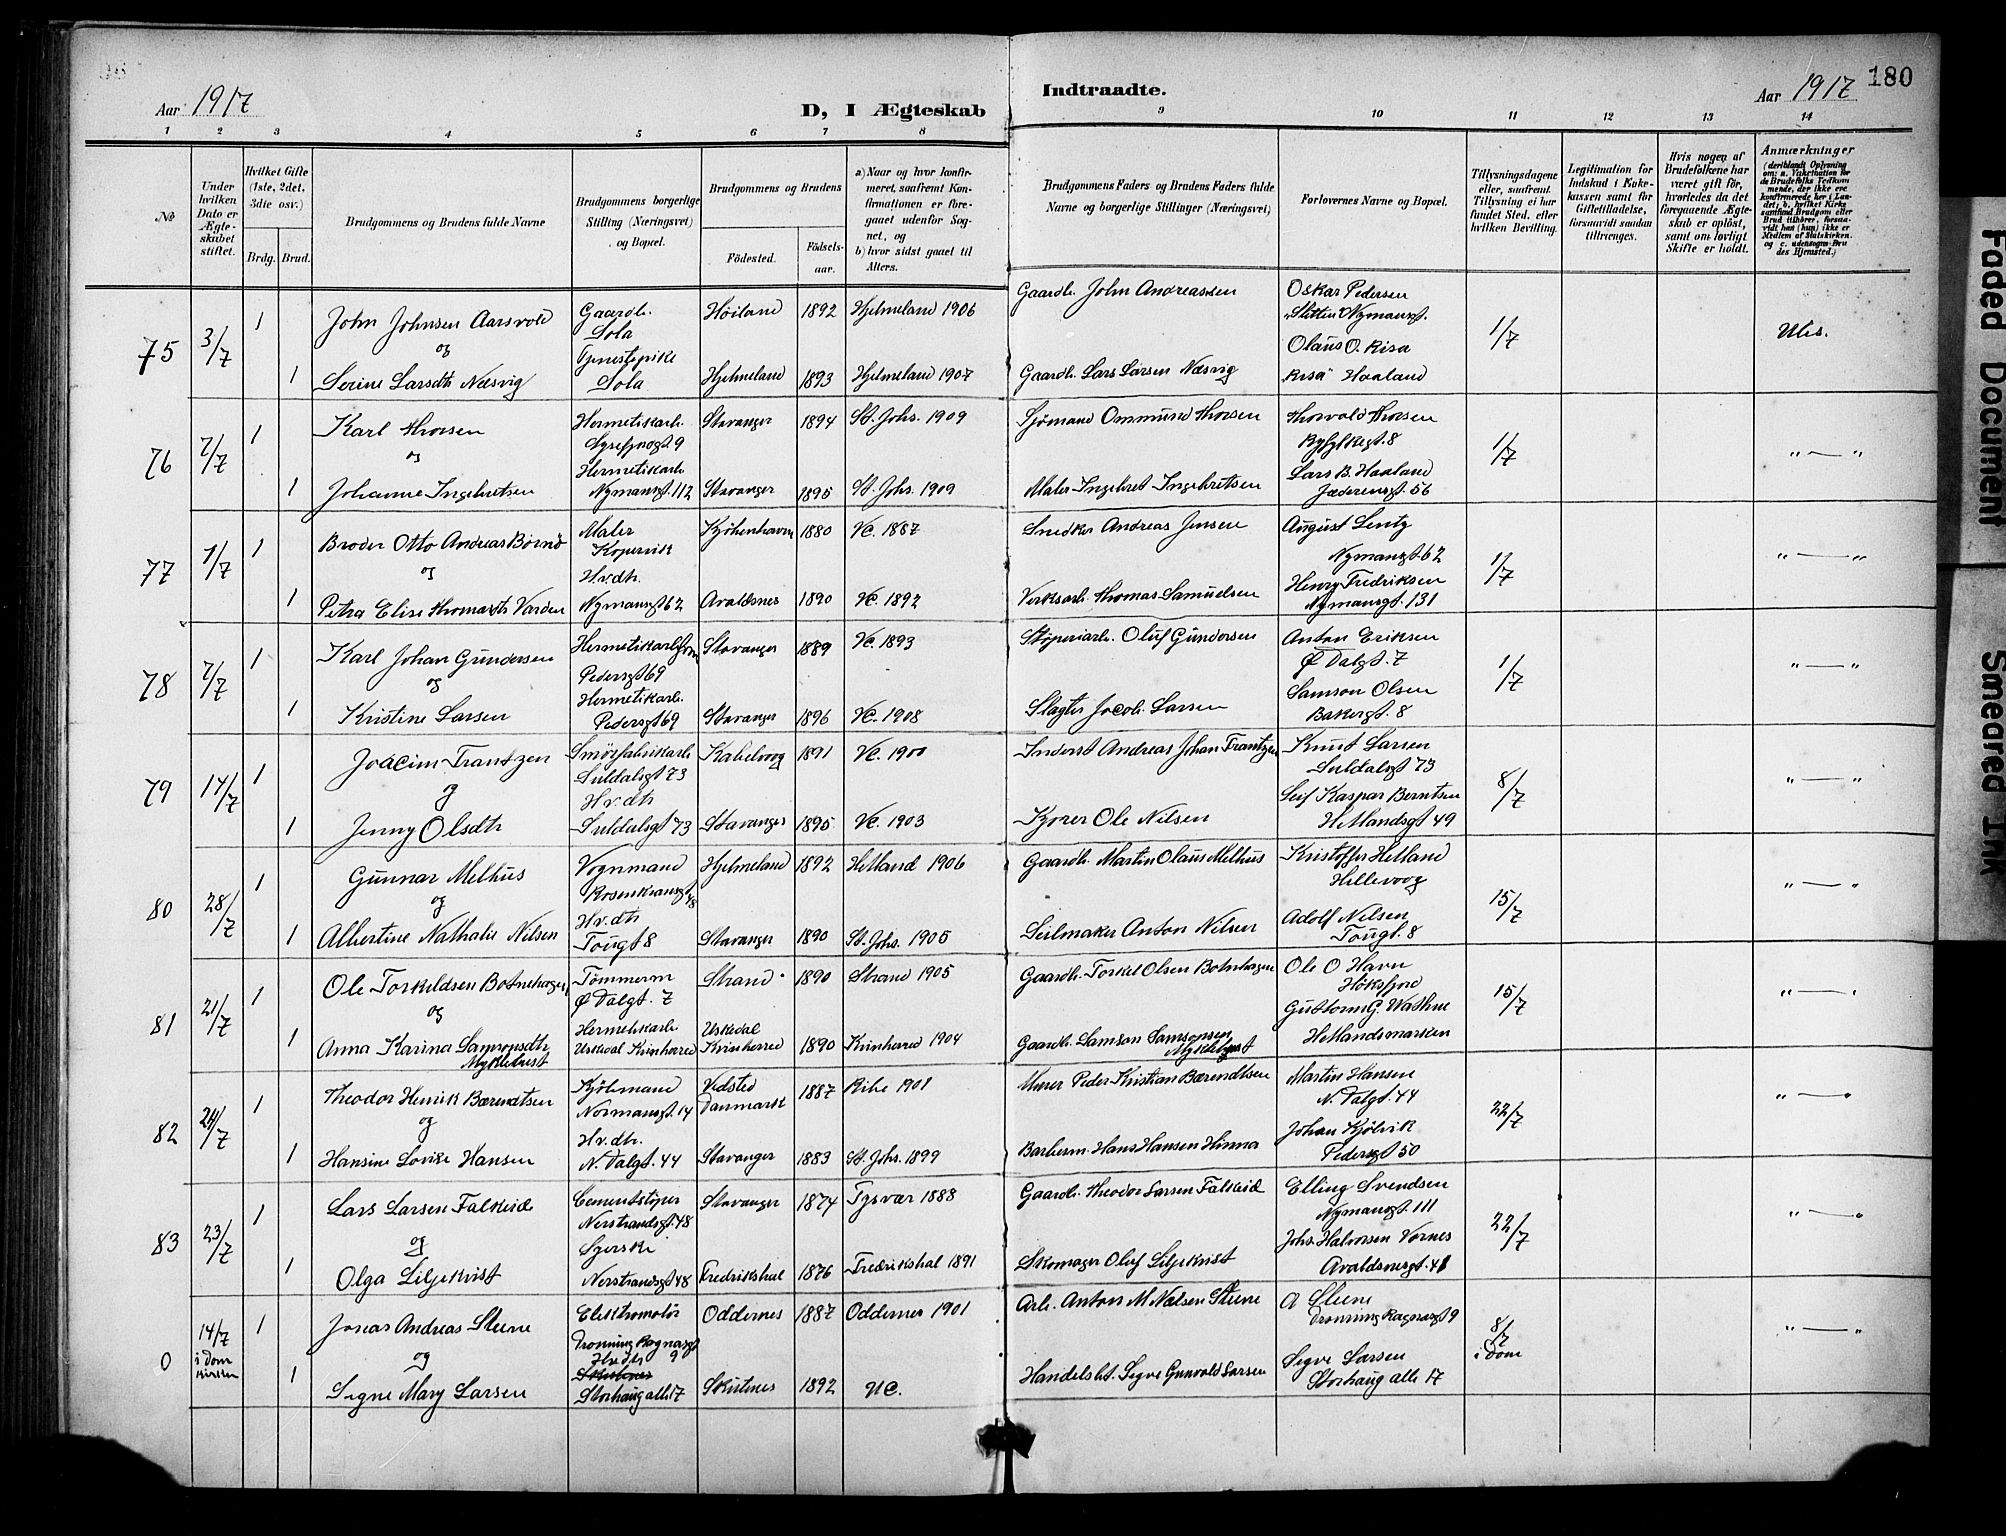 Aar 1917
D, I Ægteskab
Indtraadte.
Aar 1917
180
1 2 3 4 5 6 7 8 9 10 11 12 13 14
No
Under hvilken Dato er Ægteskabet stiftet.
Hvilket Gifte (1ste, 2det, 3die osv.)
Brdg. Brud.
Brudgommens og Brudens fulde Navne
Brudgommens borgerlige Stilling (Næringsvei) og Bopæl.
Brudgommens og Brudens
Födested.
Födselsaar.
a) Naar og hvor konfirmeret, saafremt Konfirmationen er foregaaet udenfor Sognet, og
b) hvor sidst gaaet til Alters.
Brudgommens Faders og Brudens Faders fulde Navne og borgerlige Stillinger (Næringsvei)
Forlovernes Navne og Bopæl.
Tillysningsdagene eller, saafremt Tillysning ei har fundet Sted, efter hvilken Bevilling.
Legitimation for Indskud i Enkekassen samt for Giftetilladelse, forsaavidt saadan tiltrænges.
Hvis nogen af Brudefolkene har været gift för, hvorledes da det foregaaende Ægteskab er oplöst, samt om lovligt Skifte er holdt.
Anmærkninger
(deriblandt Oplysning om: a. Vakcination for de Brudefolks Vedkommende, der ikke ere konfirmerede her i Landet; b. hvilket Kirkesamfund Brudgom eller Brud tilhörer, forsaavidt han (hun) ikke er Medlem af Statskirken, og c. udensogns Brudes Hjemsted.)
75 3/7 1 John Johnsen Aarsvold Gaardb. Sola Høiland 1892 Hjelmeland 1906 Gaardb. John Andreassen Oskar Pedersen Nymansgt. 1/7
og Olaus O. Risa
1 Serine Larsdtr Næsvig Tjenestepike Sola Hjelmeland 1893 Hjelmeland 1907 Gaardb. Lars Larsen Næsvig "Risa" Haaland
76 7/7 1 Karl Thorsen Hermetikarb. Stavanger 1894 St. Johs. 1909 Sjømand Ommund Thorsen Thorvald Thorsen Ryfylkegt. 8 1/7 " — "
og
1 Johanne Ingebretsen Hermetikarb. Nymansgt. 112 Stavanger 1895 St. Johs. 1909 Maler Ingebret Ingebretsen Lars B. Haaland Jæderensgt. 56
77 7/7 1 Broder Otto Andreas Børnø Maler Kopervik Kjøbenhavn 1880 Vc. 1887 Snedker Andreas Jensen August Lentz Nymansgt. 62 1/7 " — "
og
1 Petra Elise Thomasdtr Varden Hv.dtr. Nymansgt 62 Avaldsnes 1890 Vc. 1892 Verksarb. Thomas Samuelsen Henry Fredriksen Nymansgt. 131
78 7/7 1 Karl Johan Gundersen Pedersgt 69 Stavanger 1889 Vc. 1893 Støperiarb. Oluf Gundersen Anton Eriksen Ø Dalgt. 7 1/7 " — "
og
1 Kristine Larsen Hermetikarb. Pedersgt 69 Stavanger 1896 Vc. 1908 Slagter Jacob Larsen Samson Olsen Bakergt. 8
79 14/7 1 Joacim Frantzen Smörfabrikarb Suldalsgt 73 Kabelvaag 1891 Vc. 1900 Inderst Andreas Johan Frantzen Knut Larsen Suldalsgt 73 8/7 " — "
og
1 Jenny Olsdtr Hv.dtr Suldalsgt 73 Stavanger 1895 Vc. 1903 Kjører Ole Nilsen Leif Kaspar Berntsen Hetlandsgt 49
80 28/7 1 Gunnar Melhus Vognmand Rosenkransgt 48 Hjelmeland 1892 Hetland 1906 Gaardb. Martin Olaus Melhus Kristoffer Hetland Hillevaag 15/7 " — "
og
1 Albertine Nathalie Nilsen Hv.dtr Tougt 8 Stavanger 1890 St. Johs. 1905 Seilmaker Anton Nilsen Adolf Nilsen Tougt. 8
81 21/7 1 Ole Torkildsen Botnehagen Tömmerm Ø Dalgt. 7 Strand 1890 Strand 1905 Gaardb. Torkel Olsen Botnehagen Ole O Havn Høksfjord 15/7 " — "
og
1 Anna Karina Samsonsdtr Myklebust Hermetikarb Uskedal Kvinherred Uskedal Kvinherred 1890 Kvinherred 1904 Gaardb. Samson Samsonsen Myklebust Guttorm G. Wathne Hetlandsmarken
82 24/7 1 Theodor Henrik Bærendtsen Kjøbmand Normansgt. 14 Vedsted Danmark 1887 Ribe 1901 Murer Peder Kristian Bærendtsen Martin Hansen N. Dalgt. 44 22/7 " — "
og
1 Hansine Lovise Hansen Hv.dtr. N. Dalgt. 44 Stavanger 1883 St. Johs. 1899 Barberm. Hans Hansen Hinna Johan Kjølvik Pedersgt 50
83 23/7 1 Lars Larsen Falkeid Cementstøper Nerstrandsgt. 48 Stavanger 1874 Tysvær 1888 Gaardb. Theodor Larsen Falkeid Elling Svendsen Nymansgt. 111 22/7 " — "
og
1 Olga Liljekvist Syerske Nerstrandsgt 48 Fredrikshal 1876 Fredrikshal 1891 Skomager Oluf Liljekvist Johs. Halvorsen Vornes Avaldsnesgt. 41
0 14/7 i Domkirken 1 Jonas Andreas Steene Elektromotör Dronning Ragnasgt 9 Oddernes 1887 Oddernes 1901 Arb. Anton M Nielsen Steene A Steene Dronning Ragnasgt 9 8/7 i Dom " — "
og
1 Signe Mary Larsen Hvdtr Storhaug alle 17 Skutnes 1892 Vc. Handelsbt. Segve Gunvald Larsen Segve Larsen Storhaug alle 17
Faded Document
Smeared Ink